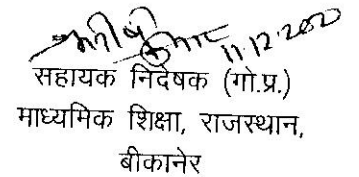 11.12.202
सहायक निदेषक (गो.प्र.)
माध्यमिक शिक्षा, राजस्थान,
बीकानेर